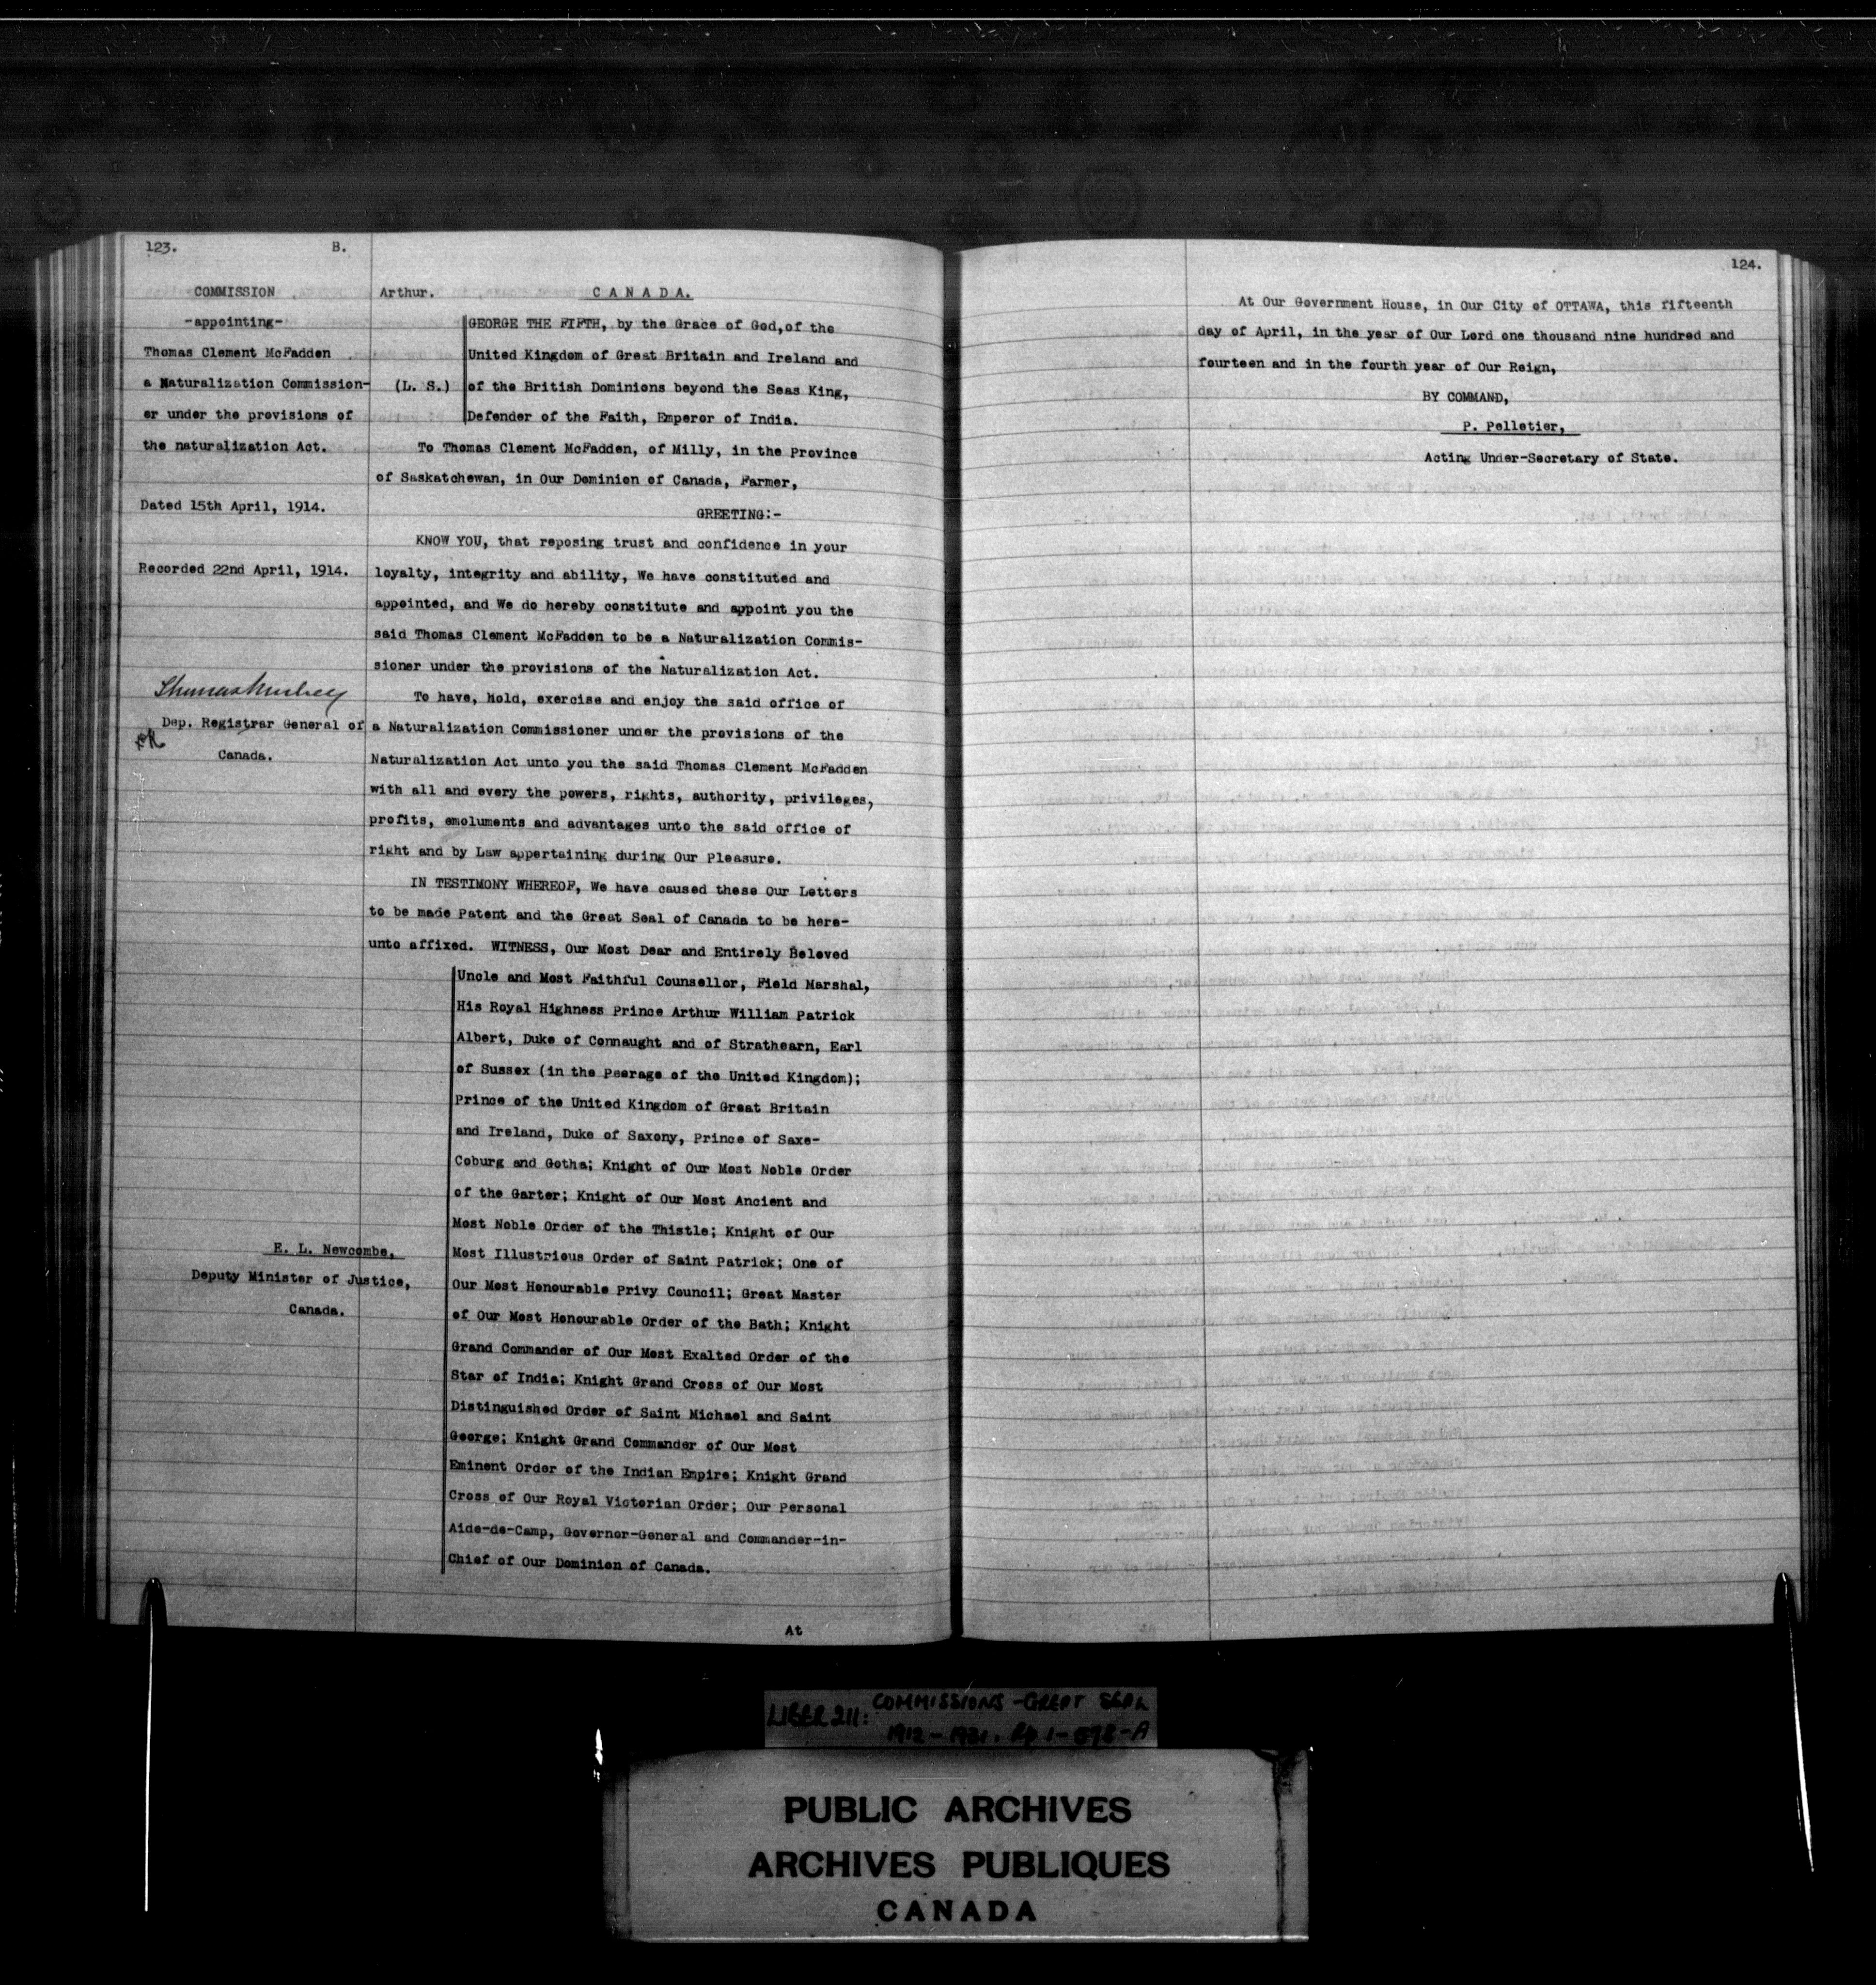 123. B.
COMMISSION
-appointing-
Thomas Clement McFadden
a Naturalization Commission-
er under the provisions of
the naturalization Act.
Dated 15th April, 1914.
Recorded 22nd April, 1914.
Thomas Mulvey
Dep. Registrar General of
Canada.
E. L. Newcombe,
Deputy Minister of Justice,
Canada.
Arthur. CANADA.
GEORGE THE FIFTH, by the Grace of God,of the
United Kingdom of Great Britain and Ireland and
(L. S.) of the British Dominions beyond the Seas King,
Defender of the Faith, Emperor of India.
To Thomas Clement McFadden, of Milly, in the Province
of Saskatchewan, in Our Dominion of Canada, Farmer,
GREETING:-
KNOW YOU, that reposing trust and confidence in your
loyalty, integrity and ability, We have constituted and
appointed, and We do hereby constitute and appoint you the
said Thomas Clement McFadden to be a Naturalization Commis-
sioner under the provisions of the Naturalization Act.
To have, hold, exercise and enjoy the said office of
a Naturalization Commissioner under the provisions of the
Naturalization Act unto you the said Thomas Clement McFadden
with all and every the powers, rights, authority, privileges,
profits, emoluments and advantages unto the said office of
right and by Law appertaining during Our Pleasure.
IN TESTIMONY WHEREOF, We have caused these Our Letters
to be made Patent and the Great Seal of Canada to be here-
unto affixed. WITNESS, Our Most Dear and Entirely Beloved
Uncle and Most Faithful Counsellor, Field Marshal,
His Royal Highness Prince Arthur William Patrick
Albert, Duke of Connaught and of Strathearn, Earl
of Sussex (in the Peerage of the United Kingdom);
Prince of the United Kingdom of Great Britain
and Ireland, Duke of Saxony, Prince of Saxe-
Coburg and Gotha; Knight of Our Most Noble Order
of the Garter; Knight of Our Most Ancient and
Most Noble Order of the Thistle; Knight of Our
Most Illustrious Order of Saint Patrick; One of
Our Most Honourable Privy Council; Great Master
of Our Most Honourable Order of the Bath; Knight
Grand Commander of Our Most Exalted Order of the
Star of India; Knight Grand Cross of Our Most
Distinguished Order of Saint Michael and Saint
George; Knight Grand Commander of Our Most
Eminent Order of the Indian Empire; Knight Grand
Cross of Our Royal Victorian Order; Our Personal
Aide-de-Camp, Governor-General and Commander-in-
Chief of Our Dominion of Canada.
At
124.
At Our Government House, in Our City of OTTAWA, this fifteenth
day of April, in the year of Our Lord one thousand nine hundred and
fourteen and in the fourth year of Our Reign,
BY COMMAND,
P. Pelletier,
Acting Under-Secretary of State.
LIBER 211: COMMISSIONS - GREAT SEAL
1912 - 1921. Pp 1-598-A
PUBLIC ARCHIVES
ARCHIVES PUBLIQUES
CANADA